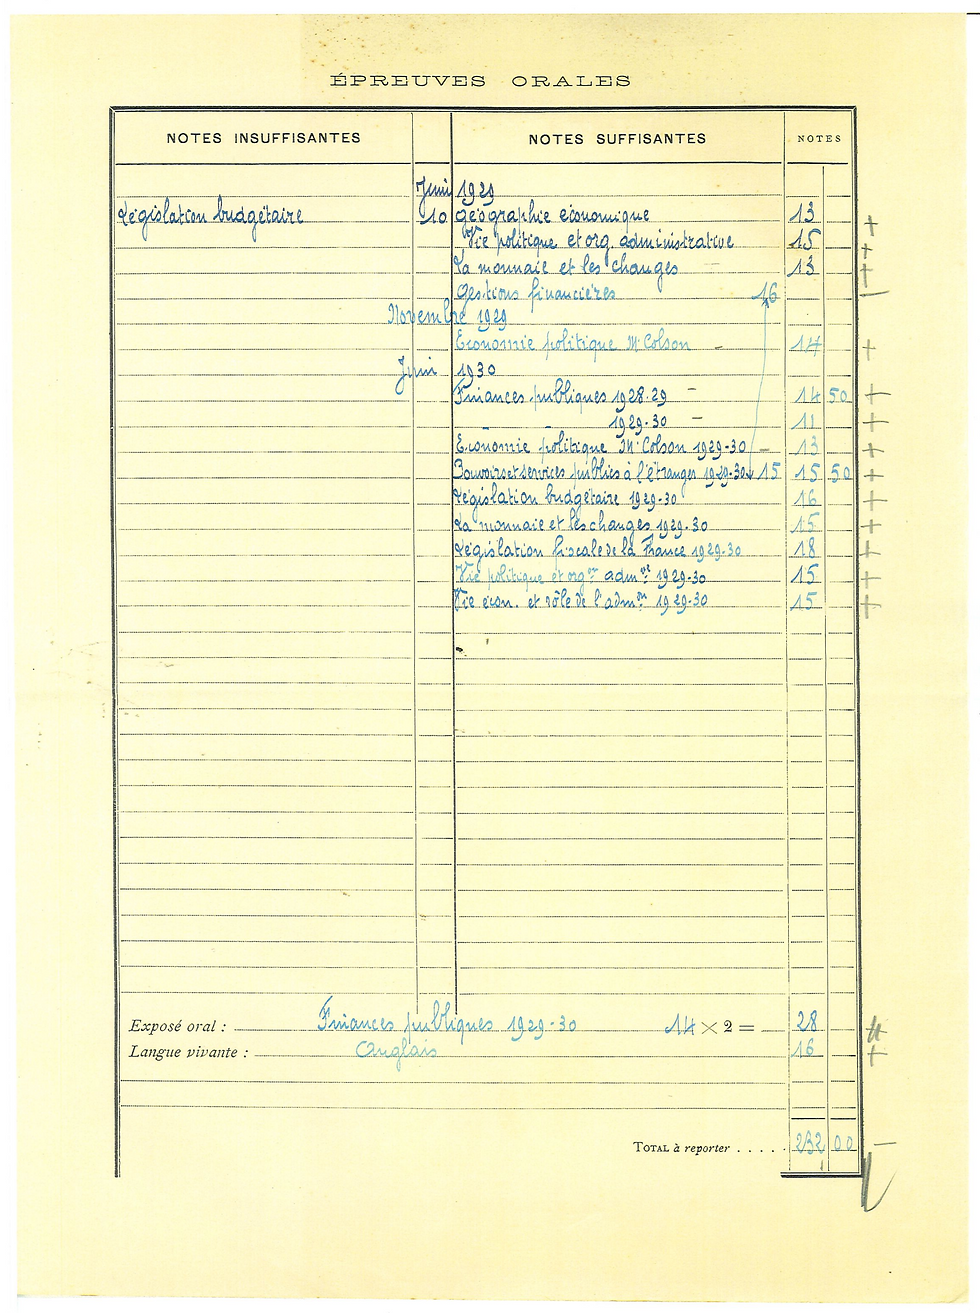 ÉPREUVES ORALES
NOTES INSUFFISANTES NOTES SUFFISANTES NOTES
Juin 1929
Législation budgétaire 10 Géographie économique 13 +
Vie politique et org. administrative 15 +
La monnaie et les changes — 13 +
Gestions financières 16 —
Novembre 1929
Economie politique Mr Colson - 14 +
Juin 1930
Finances publiques 1928-29 - 14 50 +
- - 1929-30 - 11 +
Economie politique Mr Colson 1929-30 - 13 +
Pouvoirs et services publics à l'étranger 1929-30 15 15 50 +
Législation budgétaire 1929-30 16 +
La monnaie et les changes 1929-30 15 +
Législation fiscale de la France 1929-30 18 +
Vie politique et orgon admve 1929-30 15 +
Vie écon. et rôle de l'admon 1929-30 15 +
Exposé oral : Finances publiques 1929-30 14 × 2 = 28
Langue vivante : Anglais 16 +
TOTAL à reporter . . . . . 232 00 —